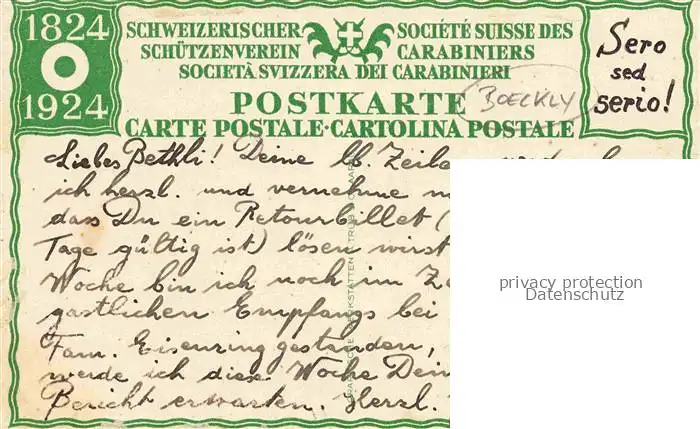 1824
1924
SCHWEIZERISCHER
SCHÜTZENVEREIN
SOCIÉTÉ SUISSE DES
CARABINIERS
SOCIETÀ SVIZZERA DEI CARABINIERI
POSTKARTE
CARTE POSTALE·CARTOLINA POSTALE
BOECKLY
Sero
sed
serio!
Liebes Bethli! Deine lb.
ich herzl. und vernehme
dass Du ein Retourbillet (
Tage gültig ist) lösen wirst
Woche bin ich noch im
gastlichen Empfangs bei
Fam. Eisenring gestanden,
werde ich diese Woche
Bericht erwarten. Herzl.
privacy protection
Datenschutz